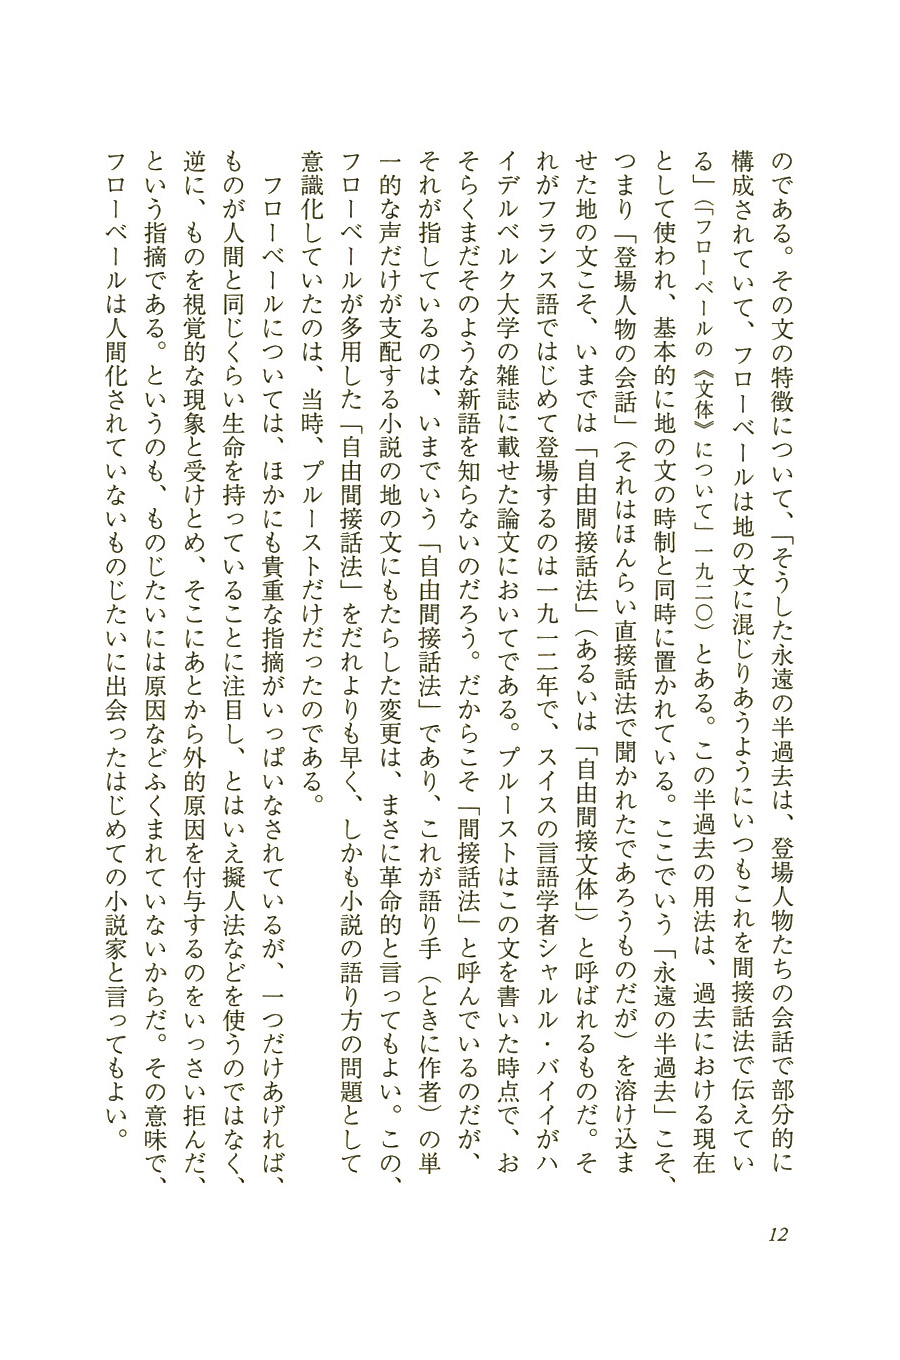 のである。その文の特徴について、「そうした永遠の半過去は、登場人物たちの会話で部分的に
構成されていて、フローベールは地の文に混じりあうようにいつもこれを間接話法で伝えてい
る」（「フローベールの《文体》について」一九二〇）とある。この半過去の用法は、過去における現在
として使われ、基本的に地の文の時制と同時に置かれている。ここでいう「永遠の半過去」こそ、
つまり「登場人物の会話」（それはほんらい直接話法で聞かれたであろうものだが）を溶け込ま
せた地の文こそ、いまでは「自由間接話法」（あるいは「自由間接文体」）と呼ばれるものだ。そ
れがフランス語ではじめて登場するのは一九一二年で、スイスの言語学者シャルル・バイイがハ
イデルベルク大学の雑誌に載せた論文においてである。プルーストはこの文を書いた時点で、お
そらくまだそのような新語を知らないのだろう。だからこそ「間接話法」と呼んでいるのだが、
それが指しているのは、いまでいう「自由間接話法」であり、これが語り手（ときに作者）の単
一的な声だけが支配する小説の地の文にもたらした変更は、まさに革命的と言ってもよい。この、
フローベールが多用した「自由間接話法」をだれよりも早く、しかも小説の語り方の問題として
意識化していたのは、当時、プルーストだけだったのである。
フローベールについては、ほかにも貴重な指摘がいっぱいなされているが、一つだけあげれば、
ものが人間と同じくらい生命を持っていることに注目し、とはいえ擬人法などを使うのではなく、
逆に、ものを視覚的な現象と受けとめ、そこにあとから外的原因を付与するのをいっさい拒んだ、
という指摘である。というのも、ものじたいには原因などふくまれていないからだ。その意味で、
フローベールは人間化されていないものじたいに出会ったはじめての小説家と言ってもよい。
12